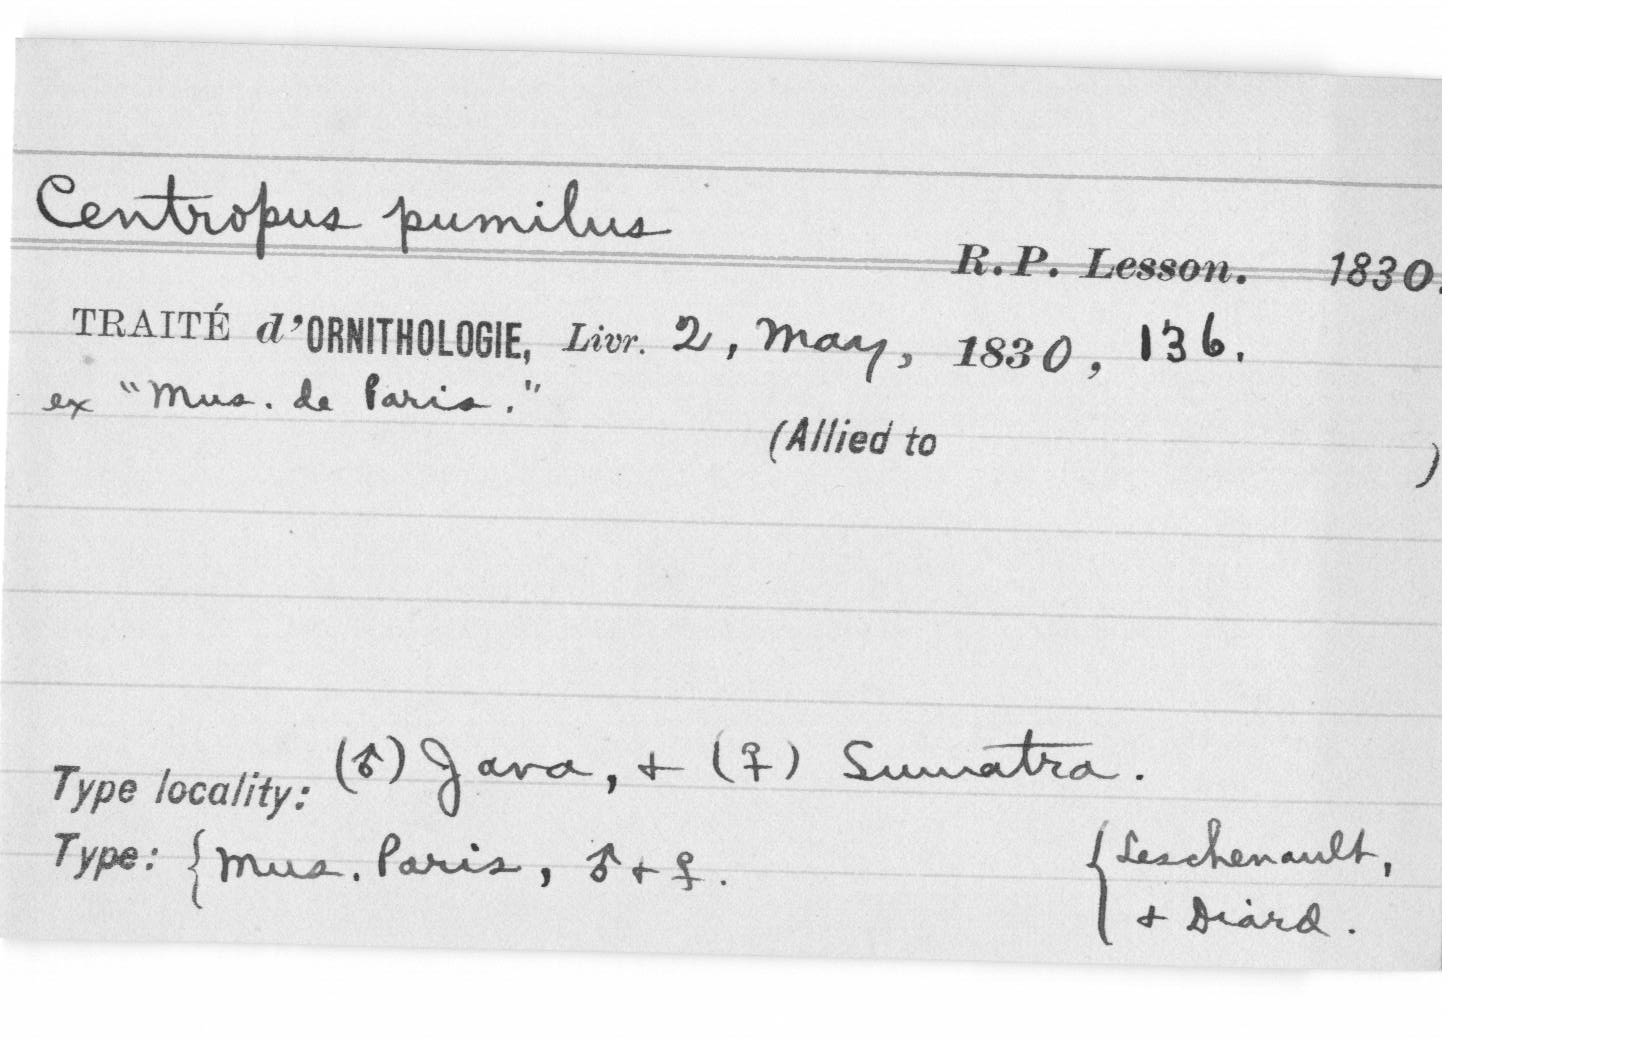 Centropus pumilus
R.P. Lesson. 1830.
TRAITÉ d'ORNITHOLOGIE, Livr. 2, May, 1830, 136.
ex "Mus. de Paris."
(Allied to )
Type locality: (♂) Java, + (♀) Sumatra.
Type: { Mus. Paris, ♂ + ♀. { Leschenault,
+ Diard.